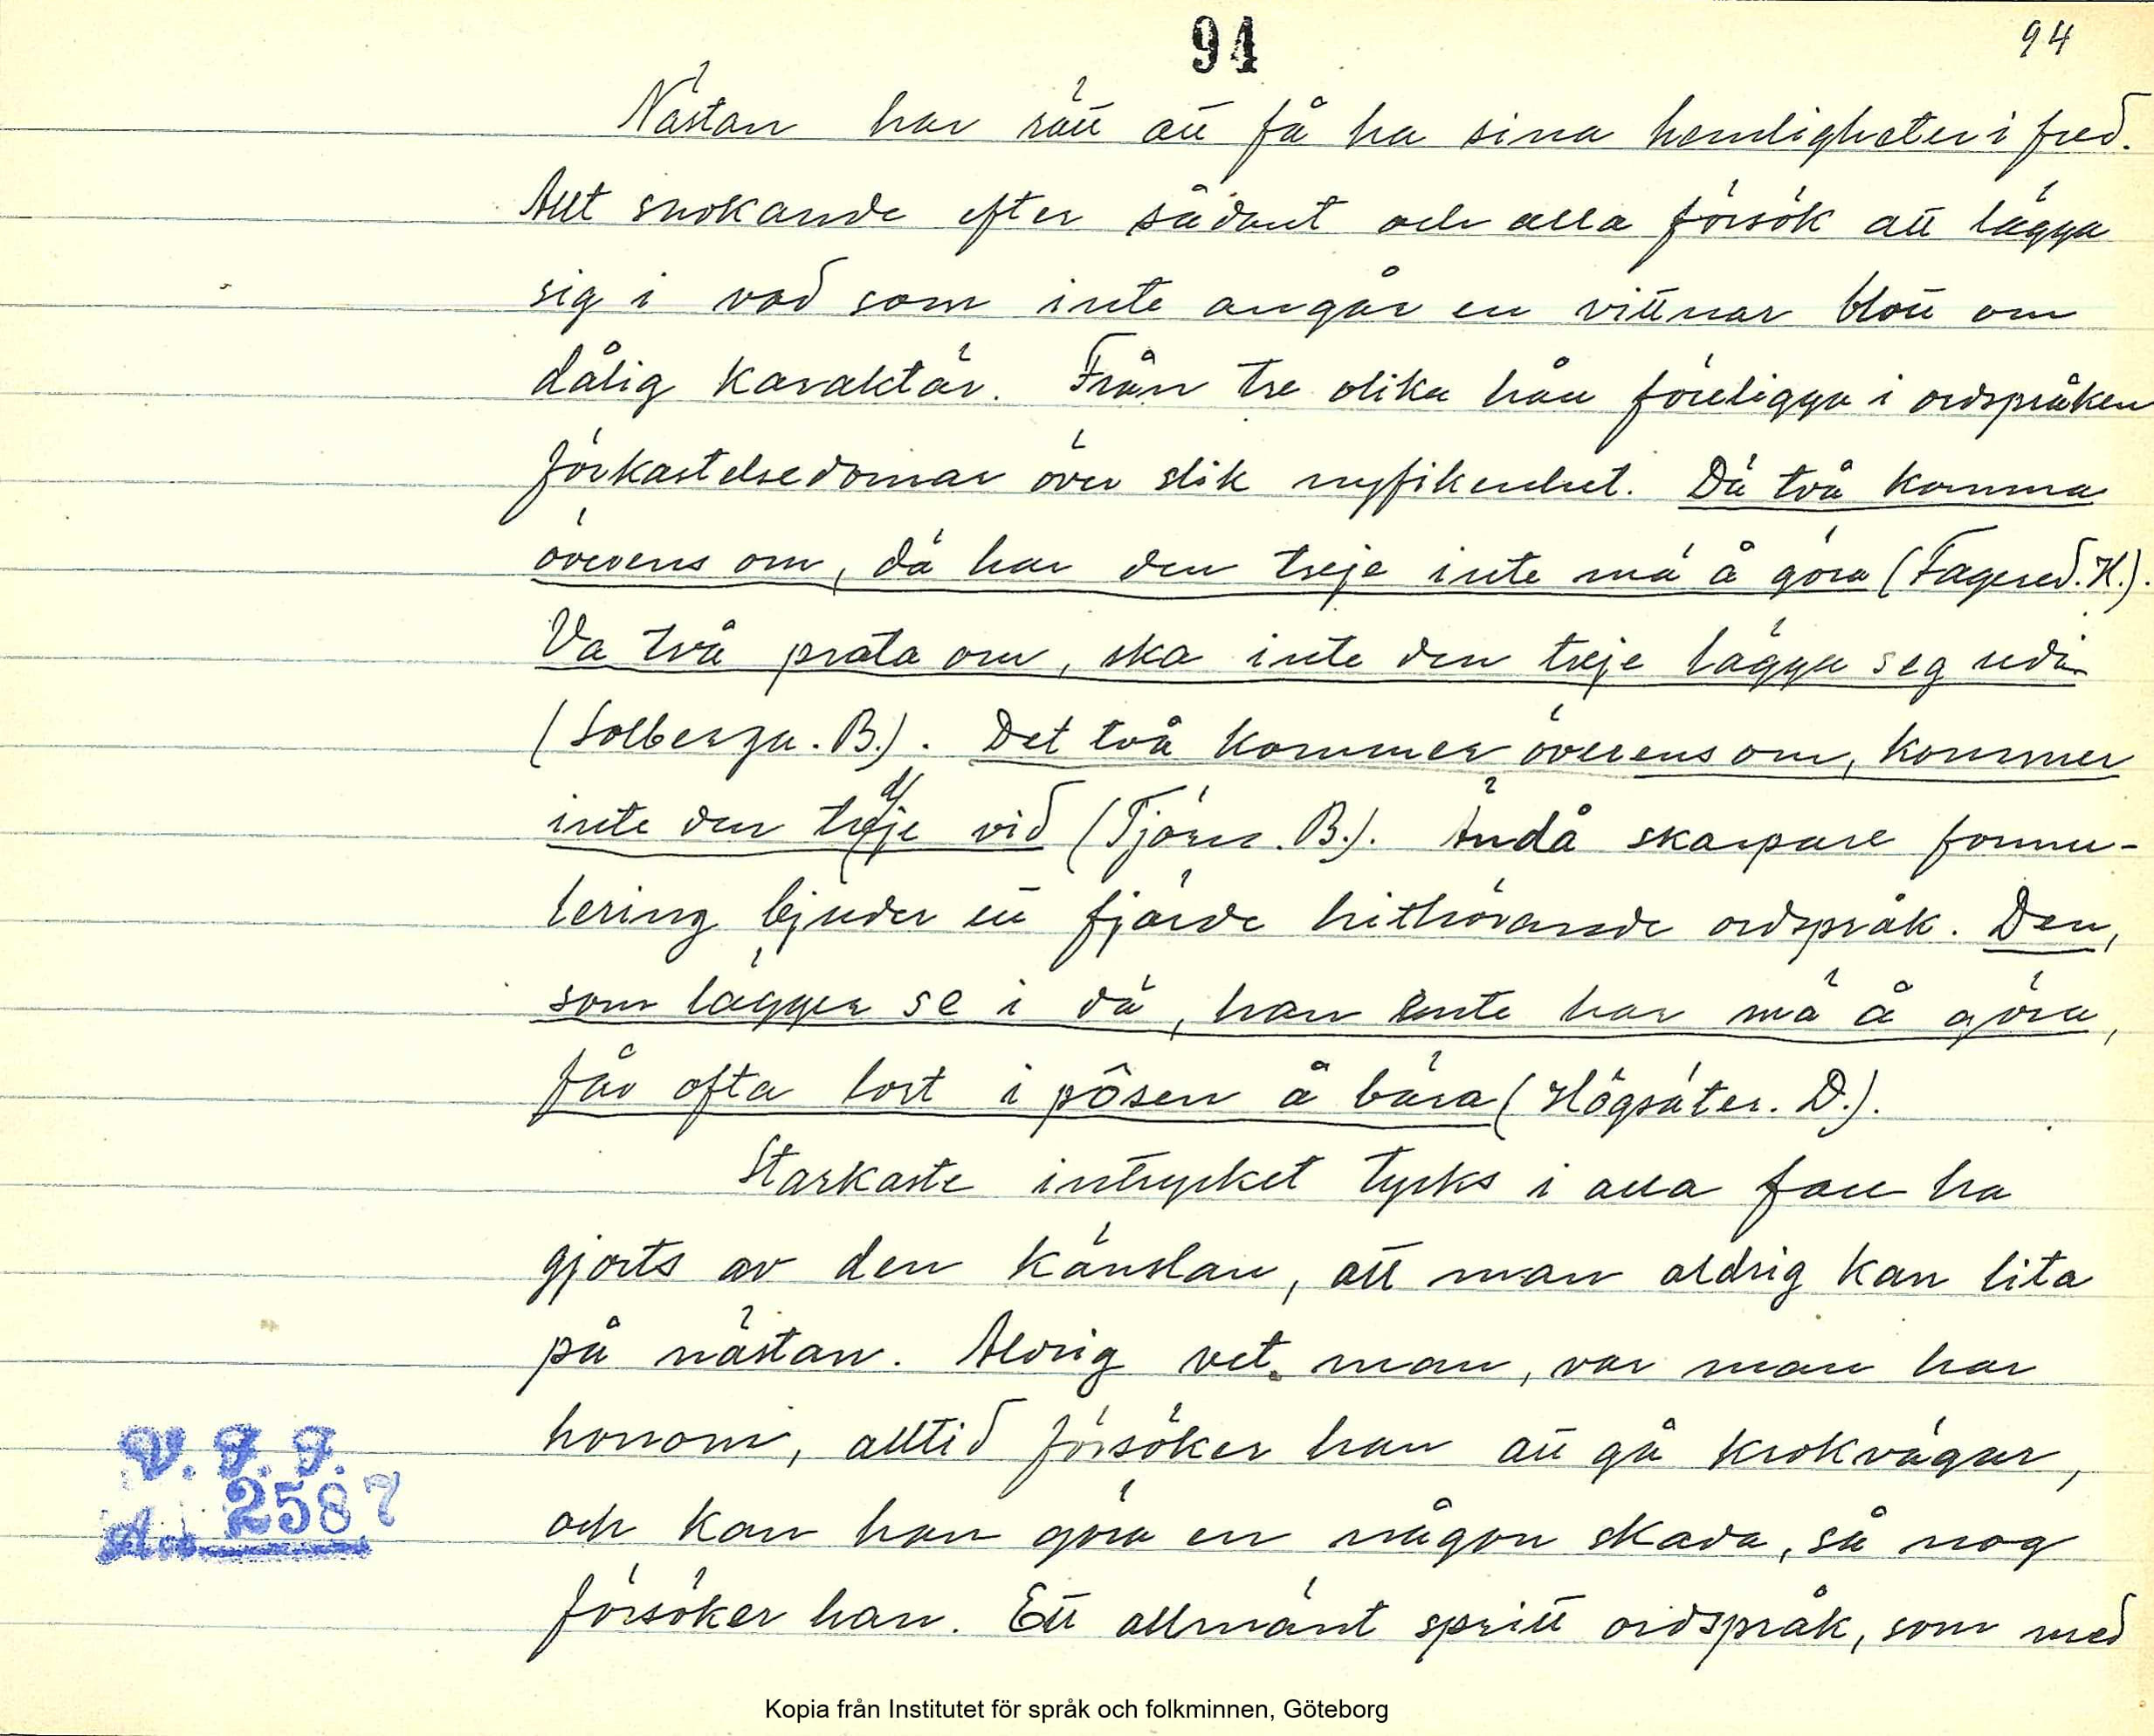 94
94
Nästan har rätt att få ha sina hemligheter i fred.
Allt snokande efter sådant och alla försök att lägga
sig i vad som inte angår en vittnar blott om
dålig karaktär. Från tre olika håll föreligga i ordspråken
förkastelsedomar över slik nyfikenhet. Dä två komma
överens om, dä har den treje inte mä å göra (Fagered. H.).
Va två prata om, ska inte den treje lägga seg udi
(Solberga. B.). Det två kommer överens om, kommer
inte den tredje vid (Tjörn. B.). Ändå skarpare formu-
lering bjuder ett fjärde hithörande ordspråk. Den,
som lägger se i dä, han ente har mä å göra,
får ofta lort i pôsen å bära (Högsäter. D.).
Starkaste intrycket tycks i alla fall ha
gjorts av den känslan, att man aldrig kan lita
på nästan. Aldrig vet man, var man har
honom, alltid försöker han att gå krokvägar,
och kan han göra en någon skada, så nog
försöker han. Ett allmänt spritt ordspråk, som med
V. F. F.
2587
Kopia från Institutet för språk och folkminnen, Göteborg